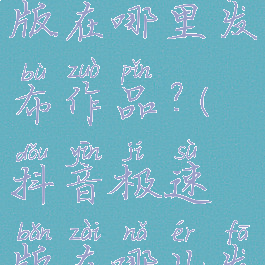 版在哪里发
bù zuò pǐn
布作品?(
dǒu yīn jí sù
抖音极速
bǎn zài nǎ ér fā
版在哪儿发